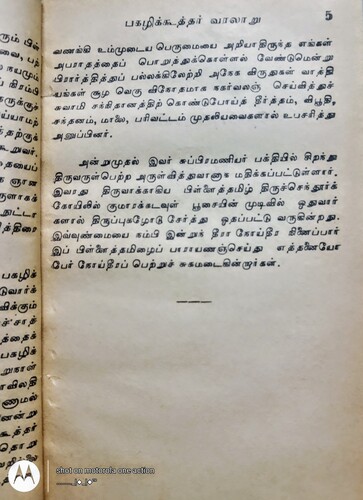 பகழிக்கூத்தர் வரலாறு 5
வணங்கி உம்முடைய பெருமையை அறியாதிருந்த எங்கள்
அபராதத்தைப் பொறுத்துக்கொள்ளல் வேண்டுமென்று
பிரார்த்தித்துப் பல்லக்கிலேற்றி அநேக விருதுகள் வாத்தி
யங்கள் சூழ வெகு விநோதமாக நகர்வலஞ் செய்வித்துச்
சுவாமி சந்நிதானத்திற் கொண்டுபோய்த் தீர்த்தம், விபூதி,
சந்தனம், மாலை, பரிவட்டம் முதலியவைகளால் உபசரித்து
அனுப்பினர்.
அன்றுமுதல் இவர் சுப்பிரமணியர் பக்தியில் சிறந்து
திருவருள்பெற்ற அருள்வித்துவானாக மதிக்கப்பட்டுள்ளார்.
இவரது திருவாக்காகிய பிள்ளைத்தமிழ் திருச்செந்தூர்க்
கோயிலில் குமாரக்கடவுள் பூசையின் முடிவில் ஒதுவார்
களால் திருப்புகழோடு சேர்த்து ஓதப்பட்டு வருகின்றது.
இவ்வுண்மையை நம்பி இன்றுந் தீரா நோய்தீர நினைப்பார்
இப் பிள்ளைத்தமிழைப் பாராயணஞ்செய்து எத்தனையோ
பேர் நோய்தீரப் பெற்றுச் சுகமடைகின்றார்கள்.
shot on motorola one action